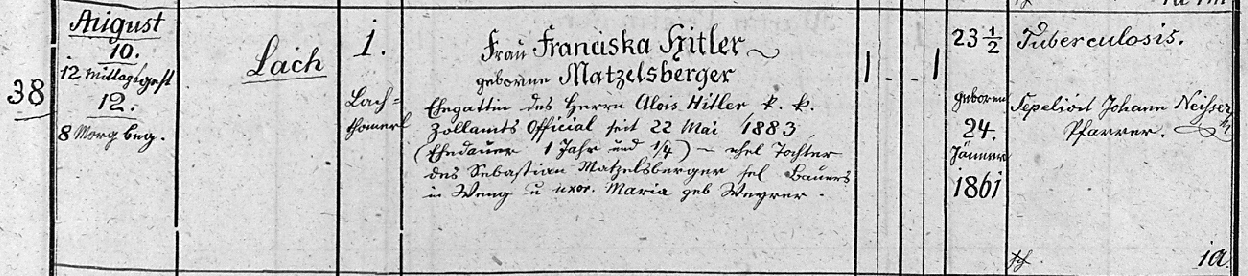 38
August
10.
12 Mittags gest
12.
8 Morg beg.
Lach
1.
Lach=
Frau Franziska Hitler
geborne Matzelsberger
Ehegattin des Herrn Alois Hitler k. k.
Zollamts Official seit 22 Mai 1883
(Ehedauer 1 Jahr und 1/4) – ehel Tochter
des Sebastian Matzelsberger sel Bauers
in Weng u uxor. Maria geb
1
1
23 1/2
geboren
24.
Jänner
1861
Tuberculosis.
Sepeliört Johann
Pfarrer.